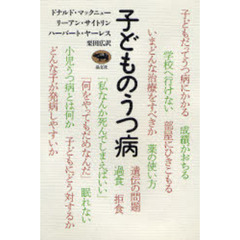 子どものうつ病
ドナルド・マックニュー
リーアン・サイトリン
ハーバート・ヤーレス
栗田広訳
晶文社
子どもだってうつ病にかかる
成績がおちる
学校へ行けない
部屋にひきこもる
いまどんな治療をすべきか
薬の使い方
遺伝の問題
過食 拒食
「私なんか死んでしまえばいい」
「何をやってもだめなんだ」
眠れない
小児うつ病とは何か
子どもにどう対するか
どんな子が発病しやすいか